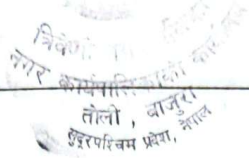 त्रिवेणी
नगर कार्यपालिकाको कार्यालय
तोली, बाजुरा
सुदूरपश्चिम प्रदेश, नेपाल